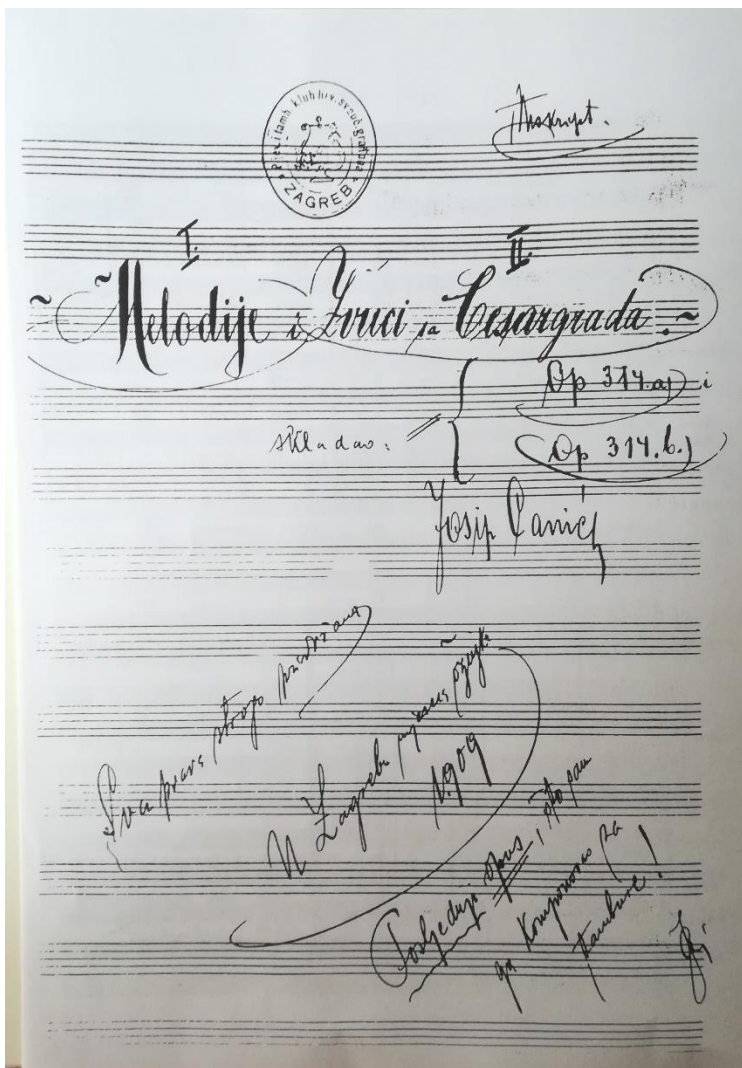 Pjev. i tamb. klub hrv. sveuč. građana
ZAGREB
I. II.
~ Melodije i Zvuci sa Cesargrada. ~
Op 314.a) i
skladao:
Op 314.b.)
Josip Canić
Sva prava strogo pridržana
U Zagrebu mjeseca ožujka
1909
Posljednji opus, što sam
ga komponovao za
tambure!